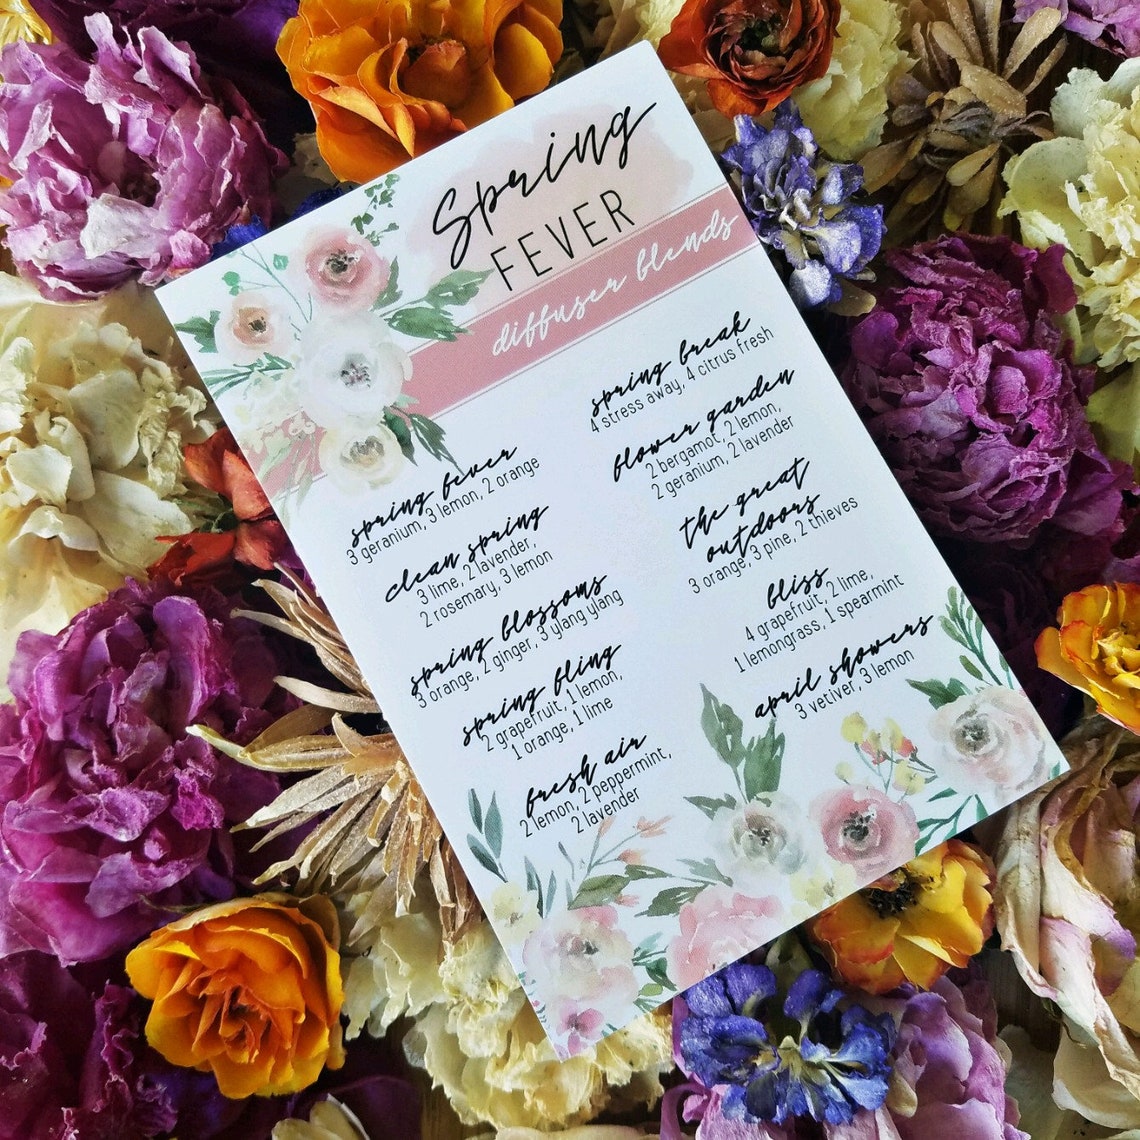 Spring
FEVER
diffuser blends
spring fever
3 geranium, 3 lemon, 2 orange
clean spring
3 lime, 2 lavender,
2 rosemary, 3 lemon
spring blossoms
3 orange, 2 ginger, 3 ylang ylang
spring bling
2 grapefruit, 1 lemon,
1 orange, 1 lime
fresh air
2 lemon, 2 peppermint,
2 lavender
spring break
4 stress away, 4 citrus fresh
flower garden
2 bergamot, 2 lemon,
2 geranium, 2 lavender
the great
outdoors
3 orange, 3 pine, 2 thieves
bliss
4 grapefruit, 2 lime,
1 lemongrass, 1 spearmint
april showers
3 vetiver, 3 lemon